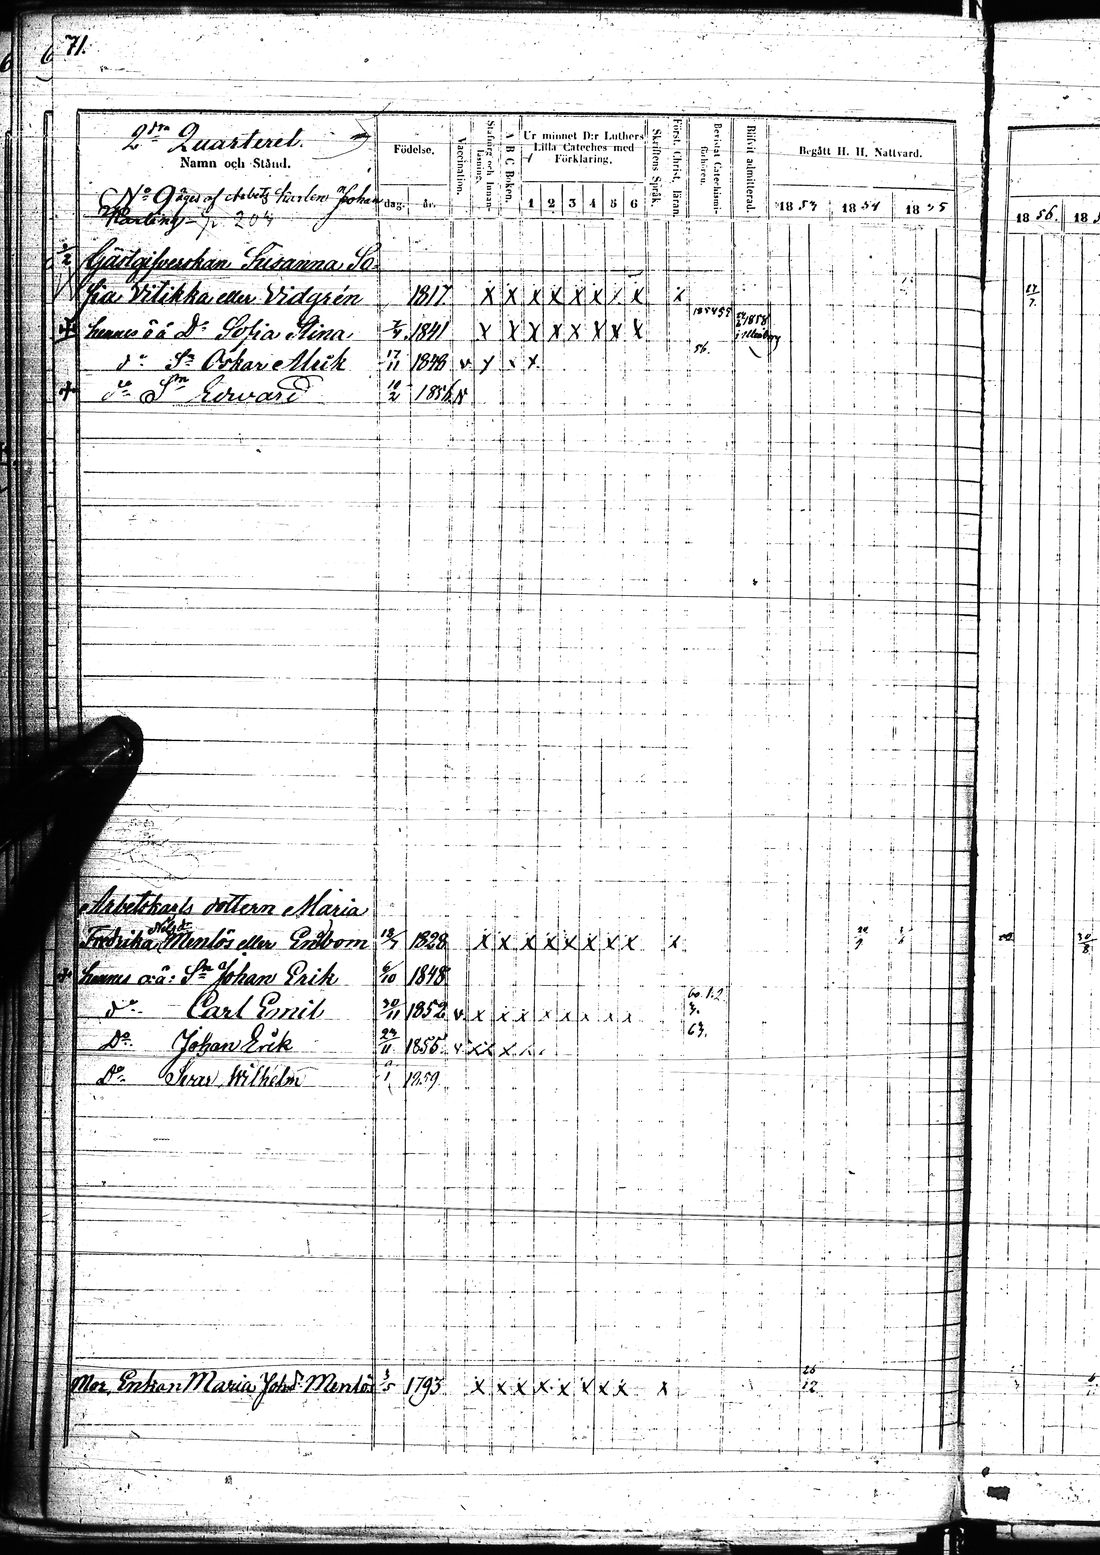 71.
2dra Quarteret.
Namn och Stånd.
Födelse.
dag.
år.
Vaccination.
Stafning och Innanläsning.
A B C Boken.
Ur minnet D:r Luthers Lilla Cateches med Förklaring.
1 2 3 4 5 6
Skriftens Språk.
Först. Christ. läran.
Bevistat Catechismiförhören.
Blifvit admitterad.
Begått H. H. Nattvard.
1853 1854 1855
1856.
No 9 äges af Arbets karlen Johan
204
Gästgifverskan Susanna So-
fia Vitikka eller Vidgrén 1817 x x x x x x x x x
hennes o ä Dr Sofia Stina 1841 x x x x x x x x 1858
do Sn Oskar 17/11 1848 v x v x 56.
do Sn Edvard 10/2 v
Arbetskarls dottern Maria
Fredrika Mentös eller Enbom 1828 x x x x x x x x x
hennes o.ä: Sn Johan Erik 6/10 1848
do Carl Emil 30/11 1852 v x x x x x x x x
Do Johan Erik 1855 v x x x 63.
Do Ivar Wilhelm 1859
Mor, Enkan Maria Johsdr Mentös 3/5 1793 x x x x x x x x x 26/12